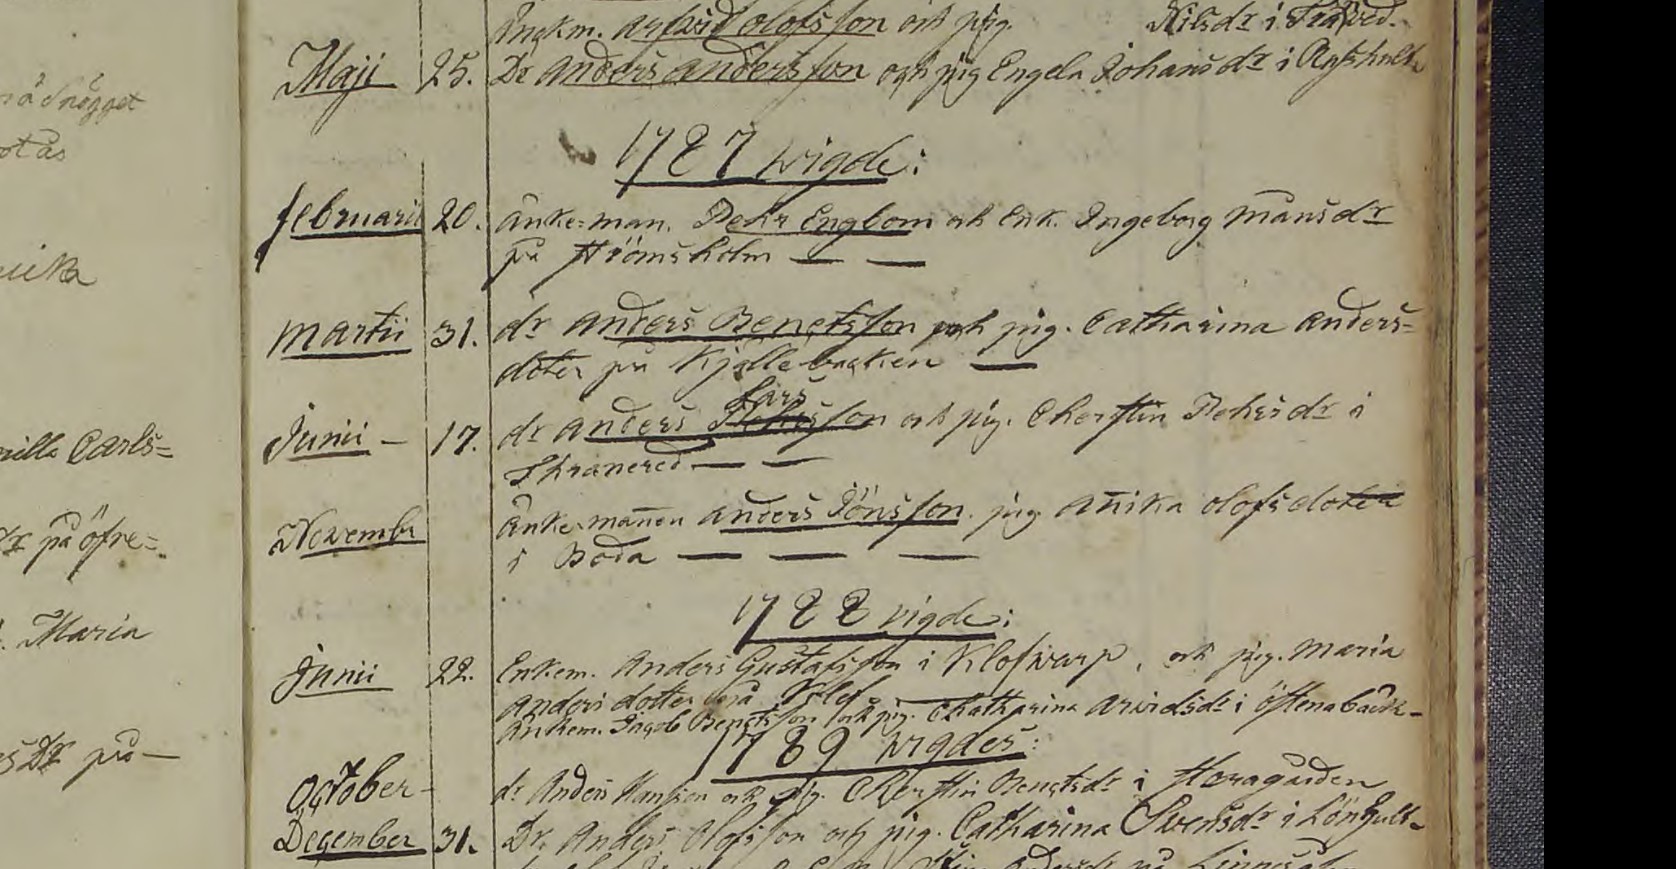 nådnågget
otås
vika
nilla Carls=
dr på öfre=
Maria
sdr på —
Enkm. Arfwid Olofsson och pig. Nilsdr i
Maji 25. Dr Anders Andersson och pig Engela Johansdr i
1787 wigde:
Februarii 20. Änke=man. Pehr Engbom och Enk. Ingeborg Månsdr
på Strömsholm — —
Martii 31. dr Anders Bengtsson och pig. Catharina Anders=
doter på Kjällebacken —
Lars
Junii — 17. dr Anders Pehrsson och pig. Cherstin Pehrsdr i
Skranered — —
Novembr Änkemannen Anders Jönsson. pig Anika Olofsdoter
i Boda — — —
1788 vigde:
Junii 22. Enkem. Anders Gustafsson i Klofwarp, och pig. Maria
Anders dotter
Änkem. Jacob Bengtsson och pig. Chatharina Arvidsdr i
1789 wigdes:
October — dr Anders Hansson och pig. Cherstin Bengtsdr i Storagården
December 31. Dr. Anders Olofsson och pig. Catharina Svensdr i Lönhult